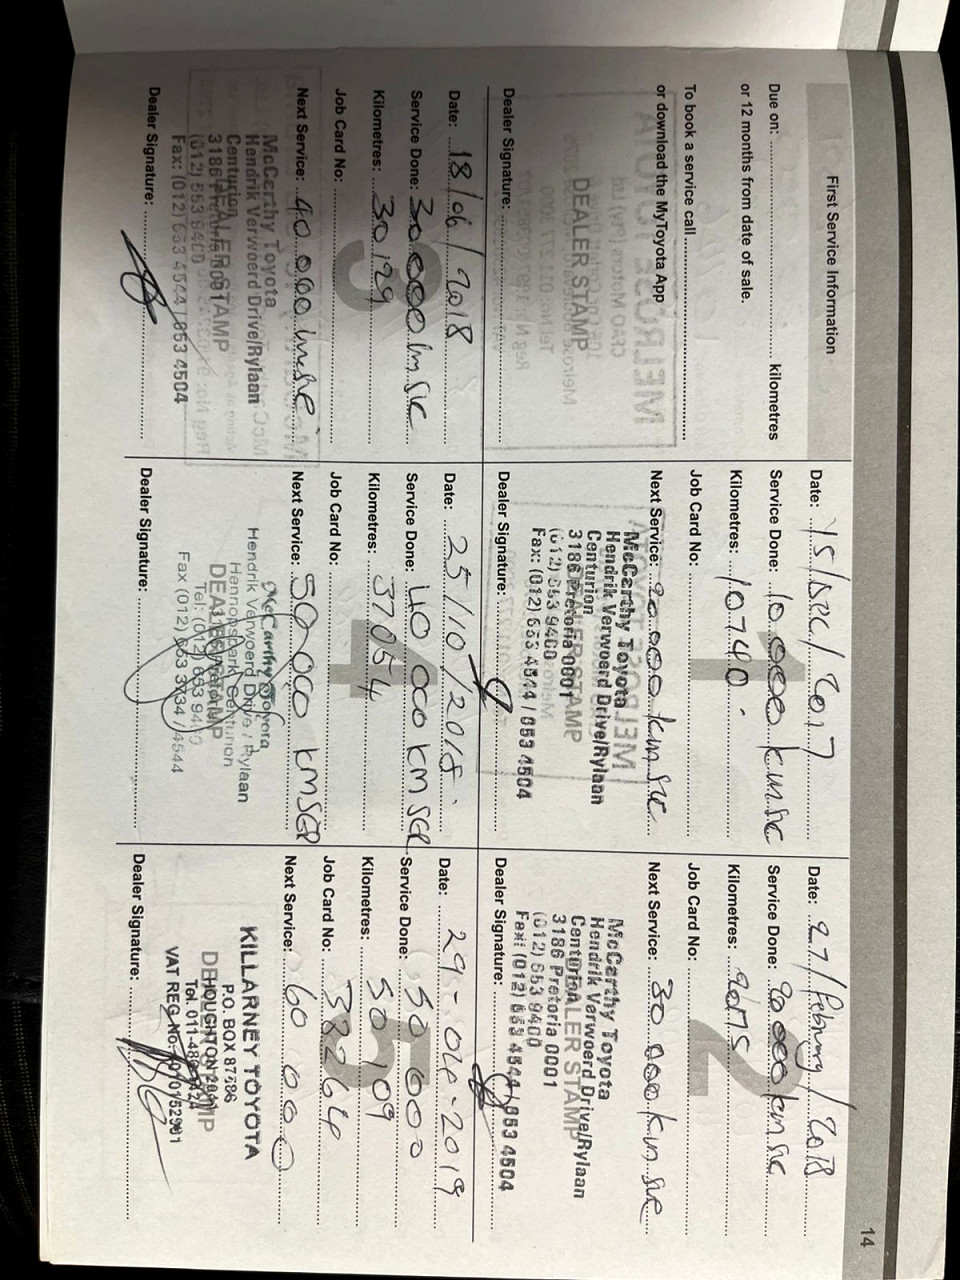 14
First Service Information
Due on: kilometres
or 12 months from date of sale.
To book a service call
or download the MyToyota App
DEALER STAMP
Dealer Signature:
1
Date: 15/Dec/2017
Service Done: 10 000 km sic
Kilometres: 10740.
Job Card No:
Next Service: 20 000 km sic
McCarthy Toyota
Hendrik Verwoerd Drive/Rylaan
Centurion
3186 Pretoria 0001
DEALER STAMP
(012) 653 9400
Fax: (012) 653 4544 / 653 4504
Dealer Signature:
2
Date: 27/February/2018
Service Done: 20 000 km sic
Kilometres:
Job Card No:
Next Service: 30 000 km sic
McCarthy Toyota
Hendrik Verwoerd Drive/Rylaan
Centurion
DEALER STAMP
3186 Pretoria 0001
(012) 653 9400
Fax: (012) 653 4544 / 653 4504
Dealer Signature:
3
Date: 18/06/2018
Service Done: 30 000 km sic
Kilometres: 30 129
Job Card No:
Next Service: 40 000
McCarthy Toyota
Hendrik Verwoerd Drive/Rylaan
Centurion
3186 Pretoria 0001
DEALER STAMP
(012) 653 9400
Fax: (012) 653 4544 / 653 4504
Dealer Signature:
4
Date: 25/10/2018.
Service Done: 40 000 KM SER
Kilometres: 37054
Job Card No:
Next Service: 50 000 KM SER
McCarthy Toyota
Hendrik Verwoerd Drive / Rylaan
Hennopspark Centurion
DEALER STAMP
Tel: (012) 653 9400
Fax (012) 653 3734 / 4544
Dealer Signature:
5
Date: 29-04-2019
Service Done: 50 000
Kilometres: 50 109
Job Card No: 38264
Next Service: 60 000
KILLARNEY TOYOTA
P.O. BOX 87686
HOUGHTON 2041
DEALER STAMP
Tel 011-
VAT REG No.
Dealer Signature: